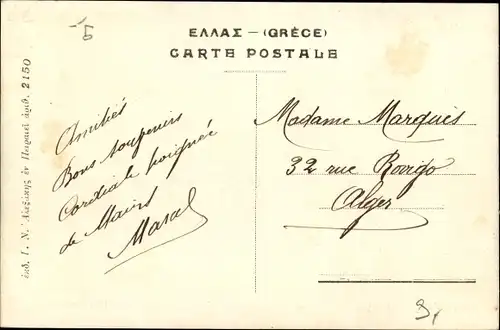 5
ΕΛΛΑΣ – (GRÈCE)
CARTE POSTALE
Amitiés
Bons souvenirs
Cordiale poignée
de Mains
Madame Marquès
32 rue Rovigo
Alger
ἐκδ. Ι. Ν. ἐν Πειραιεῖ ἀριθ. 2150